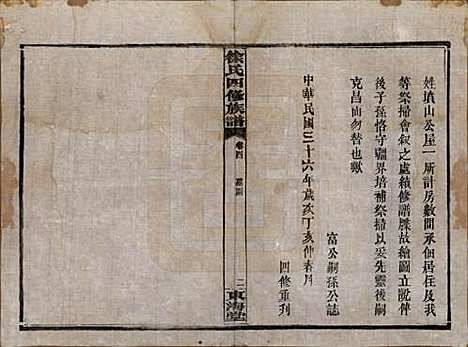 姓墳山公屋一所計房數間承佃居住及我
等祭掃會叙之處績修譜牒故繪圖立說俾
後子孫恪守疆界培補祭掃以妥先靈後嗣
克昌尚勿替也歟
富公嗣孫公誌
中華民國三十六年歲次丁亥仲春月
四修重刋
徐氏四修族譜
卷四 墓圖
二
東海堂